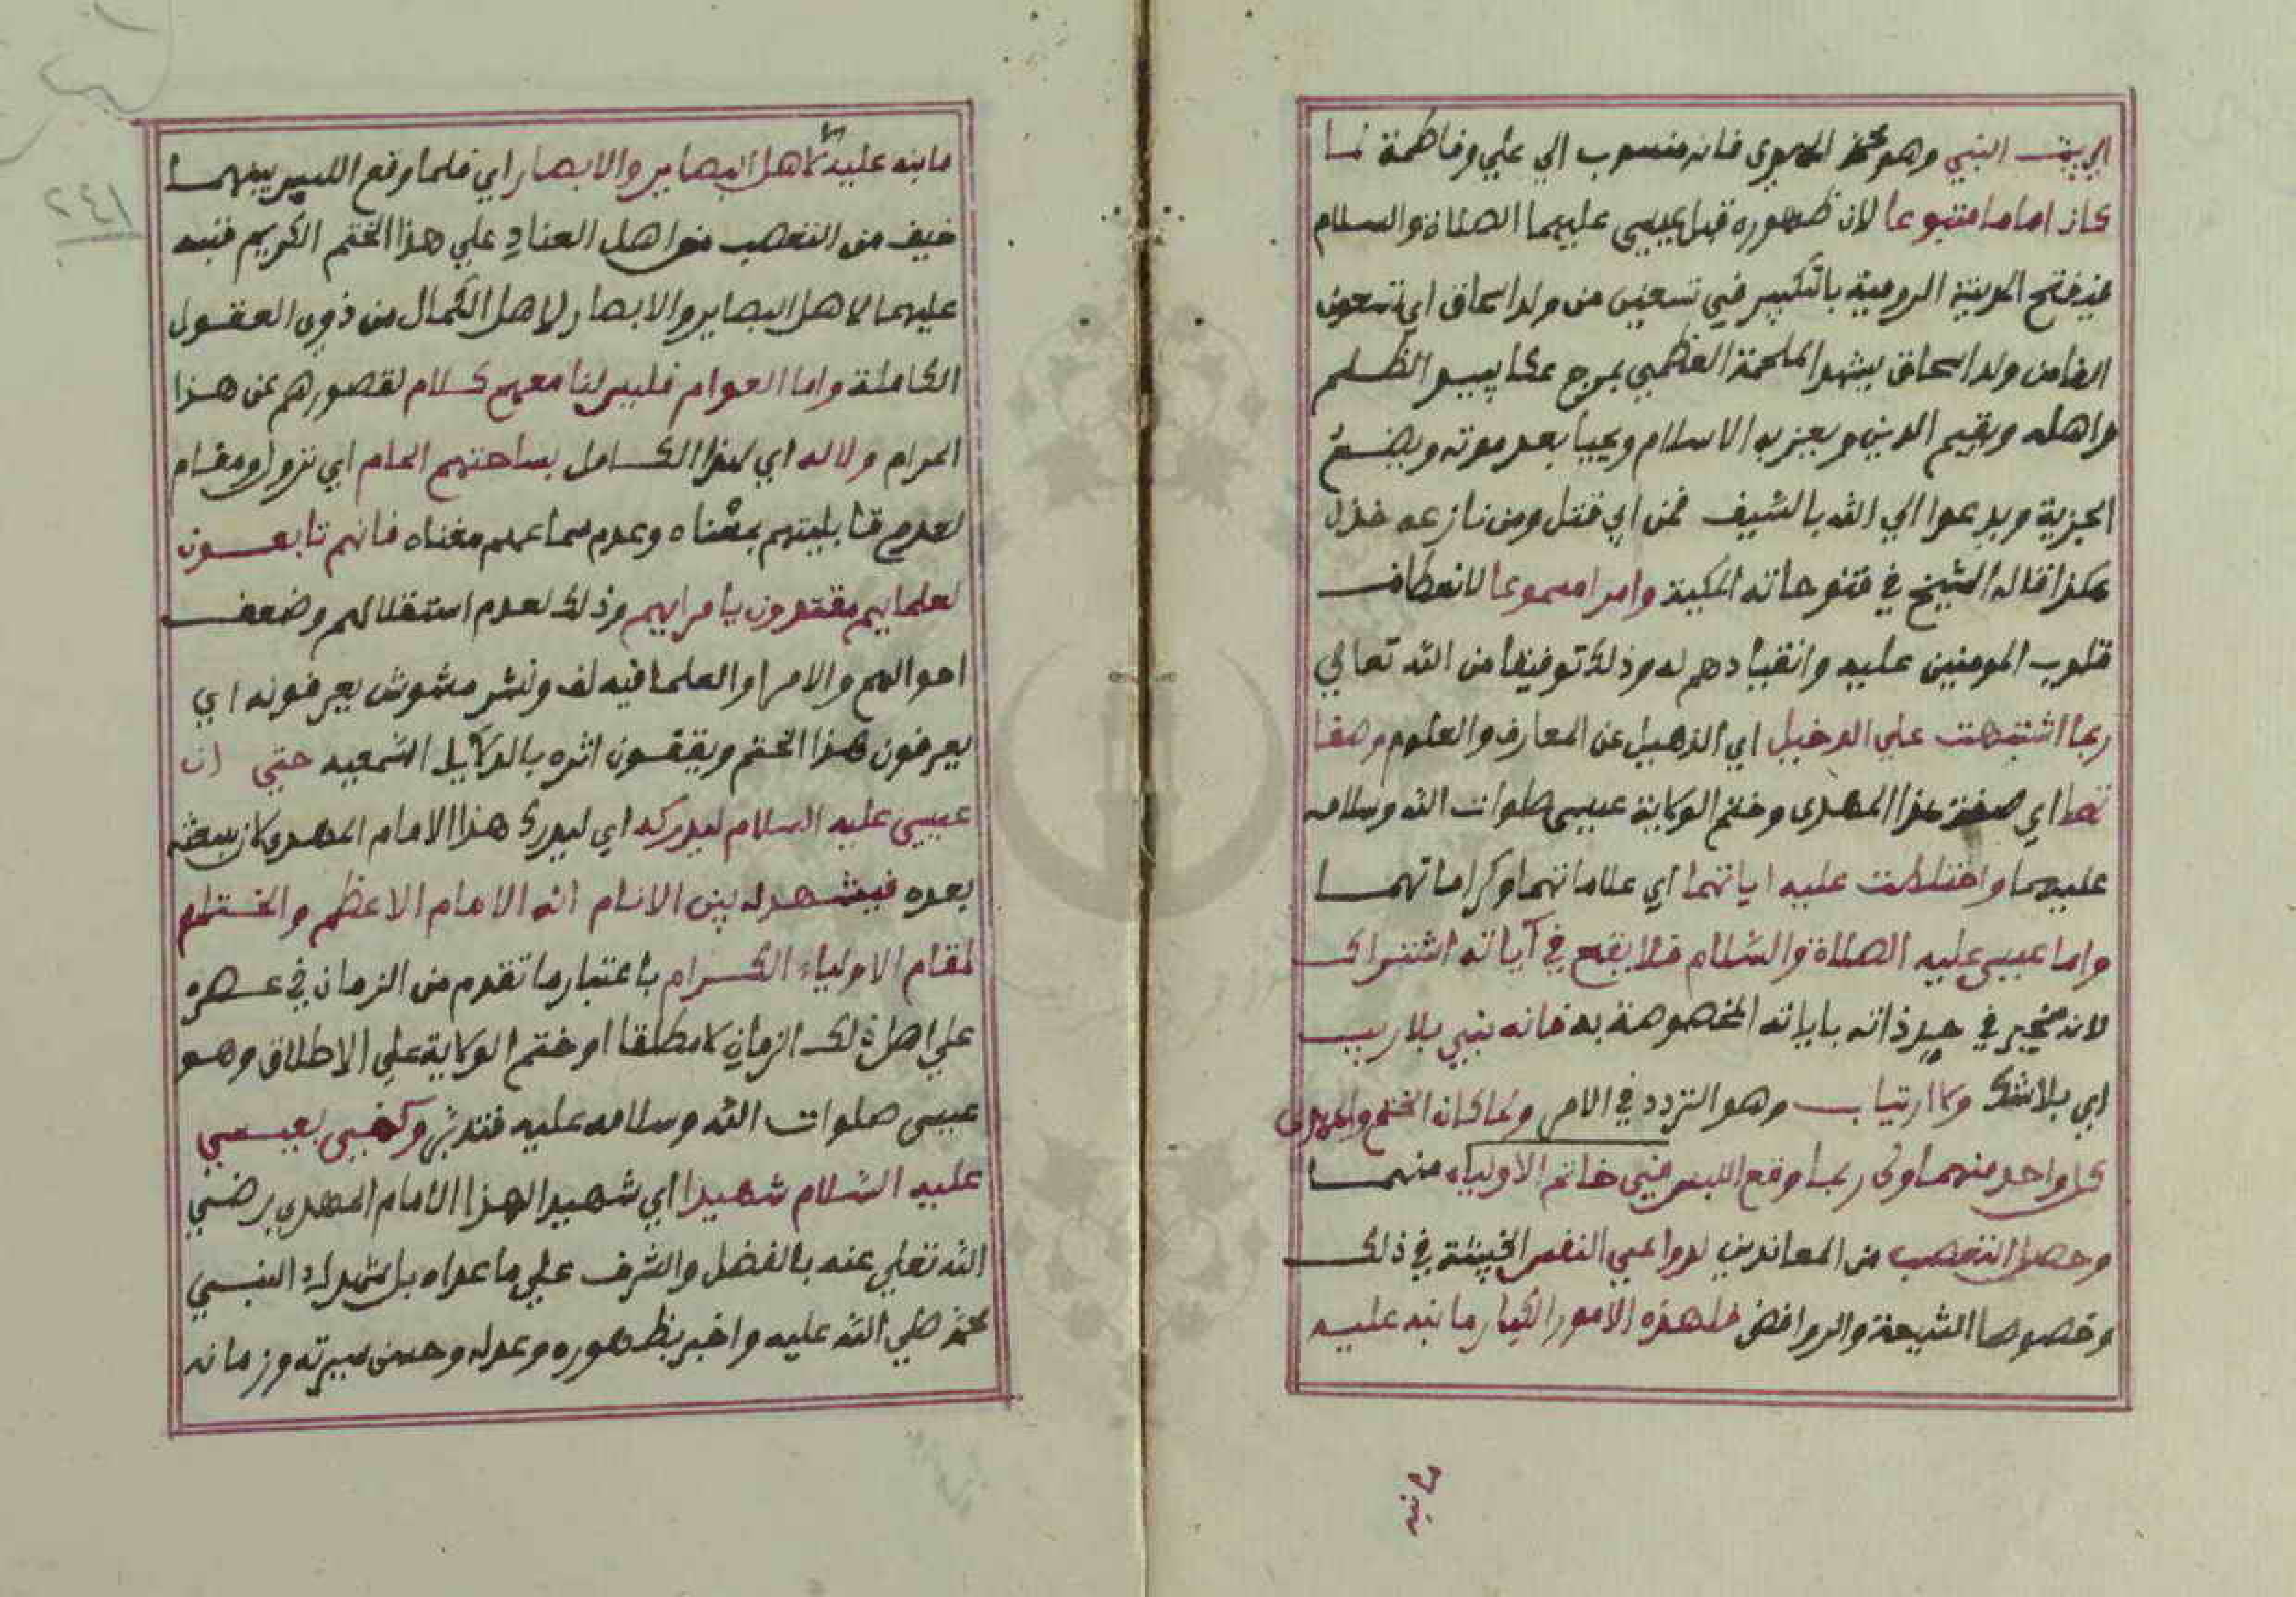 الي بيت النبي وهو محمد المهدي فانه منسوب الي علي وفاطمة لما
كان اماما متبوعا لان ظهوره قبل عيسى عليهما الصلاة والسلام
عند فتح المدينة الرومية بالتكبير في تسعين من ولد اسحاق اي تسعون
الفا من ولد اسحاق يشهد الملحمة العظمي بمرج عكا يبيد الظلم
واهله ويقيم الدين ويعز به الاسلام ويحيا بعد موته ويضع
الجزية ويدعوا الي الله بالسيف فمن ابي قتل ومن نازعه خذل
هكذا قاله الشيخ في فتوحاته المكية وامرا مسموعا لانعطاف
قلوب المومنين عليه وانقيادهم له وذلك توفيقا من الله تعالي
ربما اشتبهت علي الدخيل اي الذهيل عن المعارف والعلوم صفا
تهما اي صفة هذا المهدى وختم الولاية عيسى صلوات الله وسلامه
عليهما واختلطت عليه اياتهما اي علاماتهما وكراماتهما
واما عيسى عليه الصلاة والسلام فلا يقع في آياته اشتراك
لانه في حد ذاته باياته المخصوصة به فانه نبي بلا ريب
اي بلا شك ولا ارتياب وهو التردد في الامر ولما كان الختم والمهدى
كل واحد منهما ولى ربما وقع اللبس في خاتم الاولياء منهما
وحصل التعصب من المعاندين لدواعي النفس الخبيثة في ذلك
وخصوصا الشيعة والروافض فلهذه الامور الكبار ما نبه عليه
ما نبه
٢٤١
ما نبه عليه الا لاهل البصاير والابصار اي فلما وقع اللبس بينهما
خيف من التعصب من اهل العناد علي هذا الختم الكريم فنبه
عليهما لاهل البصاير والابصار لاهل الكمال من ذوى العقول
الكاملة واما العوام فليس لنا معهم كلام لقصورهم عن هذا
المرام ولا له اي لهذا الكامل بساحتهم المام اي نزول ومقام
لعدم قابليتهم بمعناه وعدم سماعهم مغناه فانهم تابعون
لعلمايهم مقتدون بامرايهم وذلك لعدم استقلالهم وضعف
احوالهم والامرا والعلما فيه لف ونشر مشوش يعرفونه اي
يعرفون هذا الختم ويقفون اثره بالدلايل السمعيه حتي ان
عيسى عليه السلام ليدركه اي ليدرك هذا الامام المهدى لان بعثه
بعده فيشهد له بين الانام انه الامام الاعظم والختام
لمقام الاولياء الكرام باعتبار ما تقدم من الزمان في عصره
علي اهل ذلك الزمان لا مطلقا او ختم الولاية علي الاطلاق وهو
عيسى صلوات الله وسلامه عليه فتدبر وكفى بعيسى
عليه السلام شهيدا اي شهيدا لهذا الامام المهدى رضي
الله تعلي عنه بالفضل والشرف علي ما عداه بل شهد له النبي
محمد صلي الله عليه واخبر بظهوره وعدله وحسن سيرته وزمانه